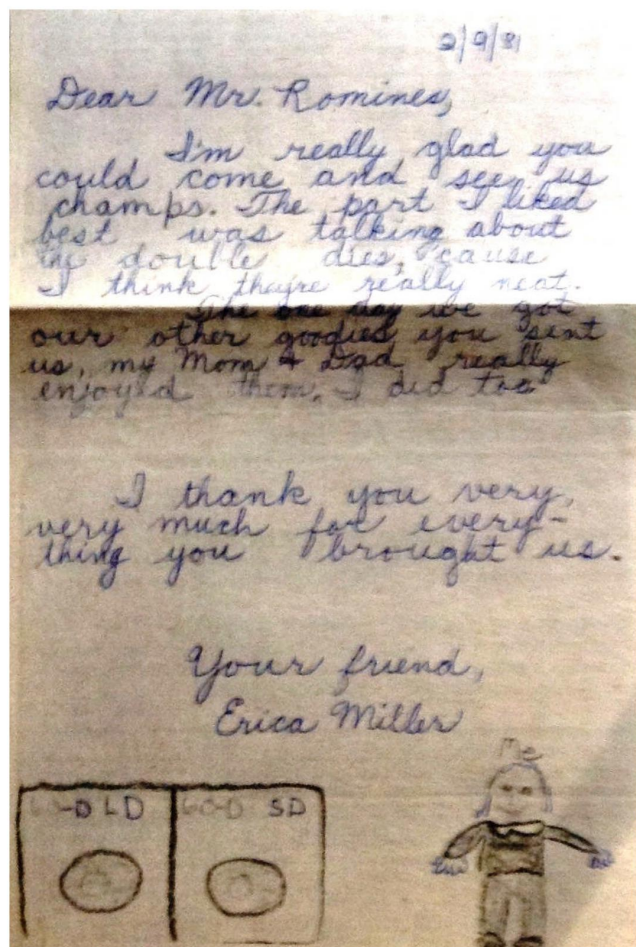 2/9/81
Dear Mr. Romines,
I'm really glad you
could come and see us
champs. The part I liked
best was talking about
the double dies, cause
I think they're really neat.
The one day we got
our other goodies you sent
us, my Mom & Dad really
enjoyed them. I did too
I thank you very,
very much for every-
thing you brought us.
Your friend,
Erica Miller
Me
60-D LD 60-D SD